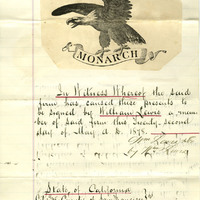 MONARCH
In Witness Whereof the said
firm has, caused these presents to
be signed by William Lewis a mem
ber of said firm this Twenty second
day of May A. D. 1878.
By Wm Lewis
State of California